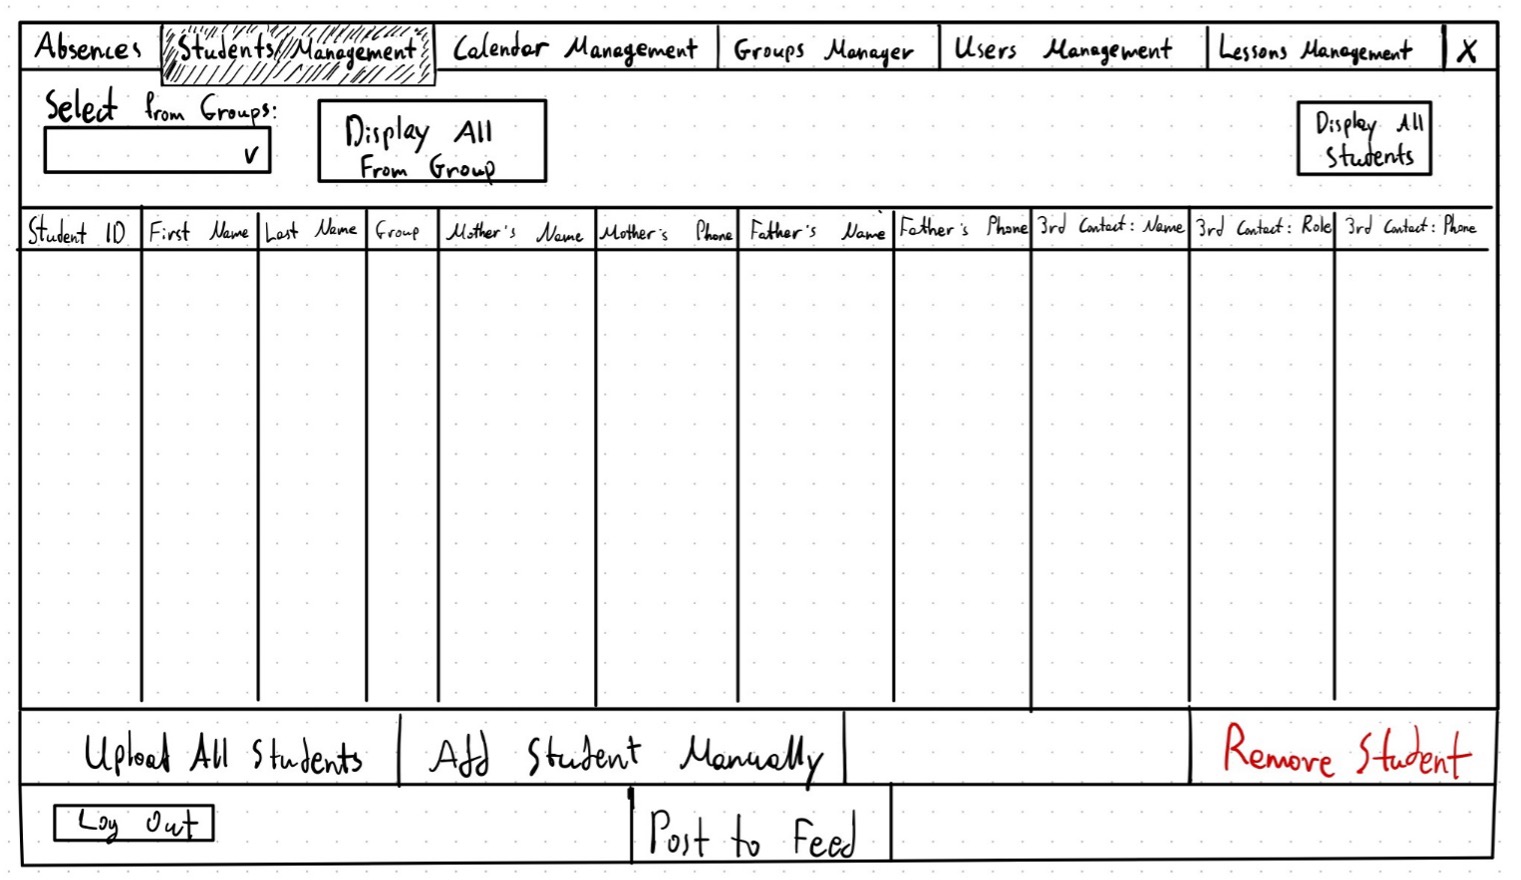 Absences Students Management Calendar Management Groups Manager Users Management Lessons Management X
Select from Groups:
Display All
From Group
Display All
Students
Student ID First Name Last Name Group Mother's Name Mother's Phone Father's Name Father's Phone 3rd Contact: Name 3rd Contact: Role 3rd Contact: Phone
Upload All Students Add Student Manually Remove Student
Log Out Post to Feed